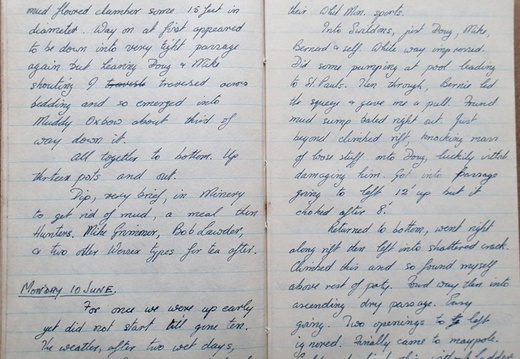 mud floored chamber some 15 feet in
diameter. Way on at first appeared
to be down into very tight passage
again but hearing Doug & Mike
shouting I traversed across
bedding and so emerged into
Muddy Oxbow about third of
way down it.
All together to bottom. Up
thirteen pots and out.
Dip, very brief, in Minery
to get rid of mud, a meal then
Hunters. Mike Grimmer, Bob Lawder,
& two other Wessex types for tea after.
MONDAY 10 JUNE.
For once we were up early
yet did not start till gone ten.
The weather, after two wet days,
this Old Min. sports.
Into Swildons, just Doug, Mike,
Bernard & self. While way improved.
Did some pumping at pool leading
to St. Pauls. Then through, Bernie led
the squeeze & gave me a pull. Found
mud sump baled right out. Just
beyond climbed rift, knocking mass
of loose stuff onto Doug, luckily without
damaging him. Got into passage
going to left 12' up but it
choked after 8'.
Returned to bottom, went right
along rift then left into shattered crack.
Climbed this and so found myself
above rest of party. Found way then into
ascending dry passage. Easy
going. Two openings to left
ignored. Finally came to maypole.